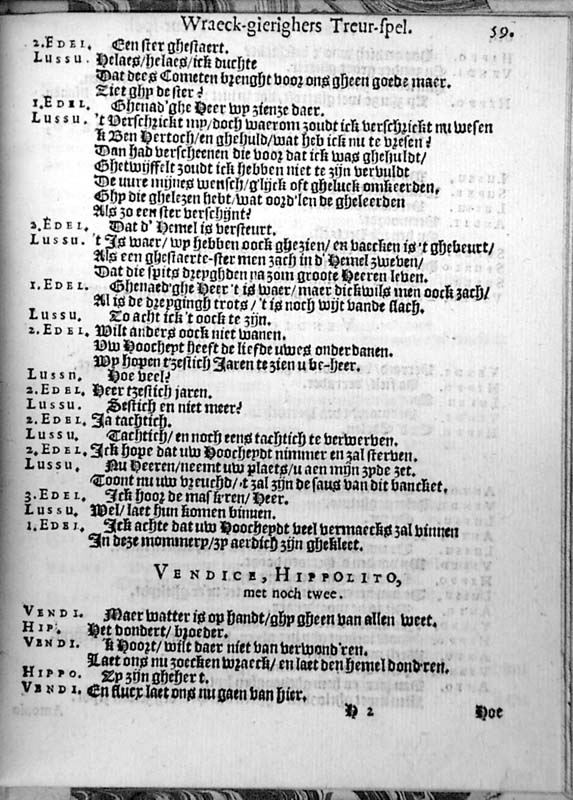 Wraeck-gierighers Treur-spel. 59.
2. EDEL. Een ster ghestaert.
LUSSU. Helaes/helaes/ick duchte
Dat dees Cometen brenght voor ons gheen goede maer.
Ziet ghy de ster?
1. EDEL. Ghenad'ghe Heer wy zienze daer.
LUSSU. 't Verschrickt my/doch waerom zoudt ick verschrickt nu wesen
'k Ben Hertoch/en ghehuld/wat heb ick nu te vresen?
Dan had verscheenen die voor dat ick was ghehuldt/
Ghetwyffelt zoudt ick hebben niet te zijn vervuldt
De uure mijnes wensch/g'lijck oft gheluck omkeerden,
Ghy die ghelezen hebt/wat oord'len de gheleerden
Als zo een ster verschijnt?
2. EDEL. Dat d'Hemel is versteurt.
LUSSU. 't Is waer/wy hebben oock ghezien/en vaecken is 't ghebeurt/
Als een ghestaerte-ster men zach in d'Hemel zweven/
Dat die spits dreyghden na zom groote Heeren leven.
1. EDEL. Ghenaed'ghe Heer 't is waer/maer dickwils men oock zach/
Al is de dreygingh trots/'t is noch wijt vande slach.
LUSSU. To acht ick 't oock te zijn.
2. EDEL. Wilt anders oock niet wanen.
Uw Hoocheyt heeft de liefde uwes onderdanen.
Wy hopen tzestich Jaren te zien u be-heer.
LUSSU. Hoe veel?
2. EDEL. Heer tzestich jaren.
LUSSU. Sestich en niet meer?
2. EDEL. Ja tachtich.
LUSSU. Tachtich/en noch eens tachtich te verwerven.
2. EDEL. Ick hope dat uw Hoocheydt nimmer en zal sterven.
LUSSU. Nu Heeren/neemt uw plaets/u aen mijn zyde zet.
Toont nu uw vreuchd/'t zal zijn de saus van dit bancket.
3. EDEL. Ick hoor de maskren/Heer.
LUSSU. Wel/laet hun komen binnen.
1. EDEL. Ick achte dat uw Hoocheydt veel vermaecks zal vinnen
In deze mommery/zy aerdich zijn ghekleet.
VENDICE, HIPPOLITO,
met noch twee.
VENDI. Maer watter is op handt/ghy gheen van allen weet.
HIP. Het dondert/broeder.
VENDI. 'k Hoort/wilt daer niet van verwond'ren.
Laet ons nu zoecken wraeck/en laet den hemel dond'ren.
HIPPO. Zy zijn gheher t.
VENDI. En flucx laet ons nu gaen van hier.
H 2 Hoe